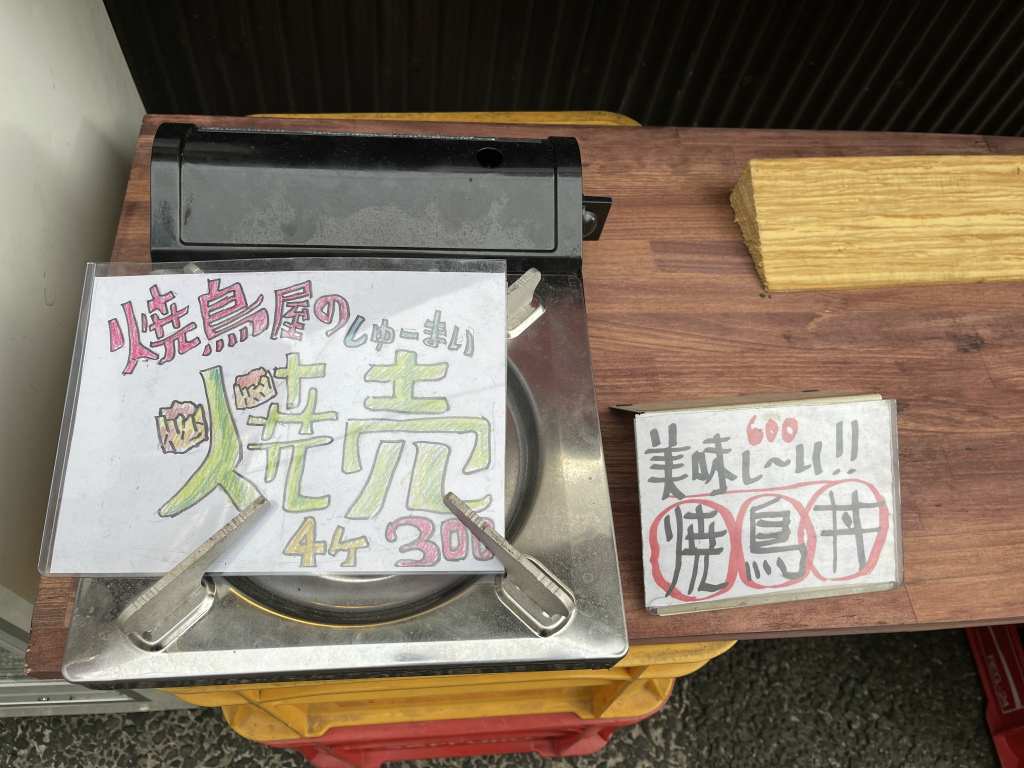 焼鳥屋の
しゅーまい
焼売
4ヶ 300
600
美味し〜い!!
焼鳥丼